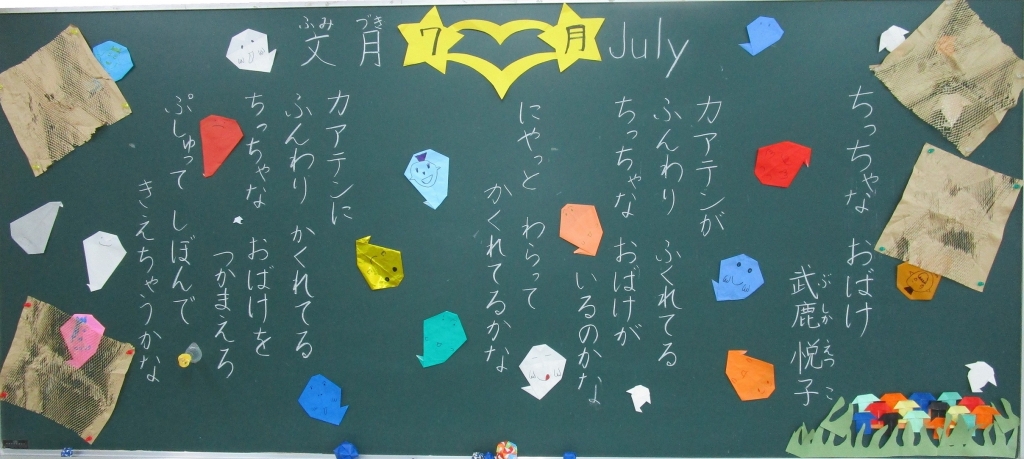 文月
ふみ づき
7月
July
ちっちゃな おばけ
武鹿悦子
ぶしか えつこ
カアテンが
ふんわり ふくれてる
ちっちゃな おばけが
いるのかな
にやっと わらって
かくれてるかな
カアテンに
ふんわり かくれてる
ちっちゃな おばけを
つかまえろ
ぷしゅって しぼんで
きえちゃうかな